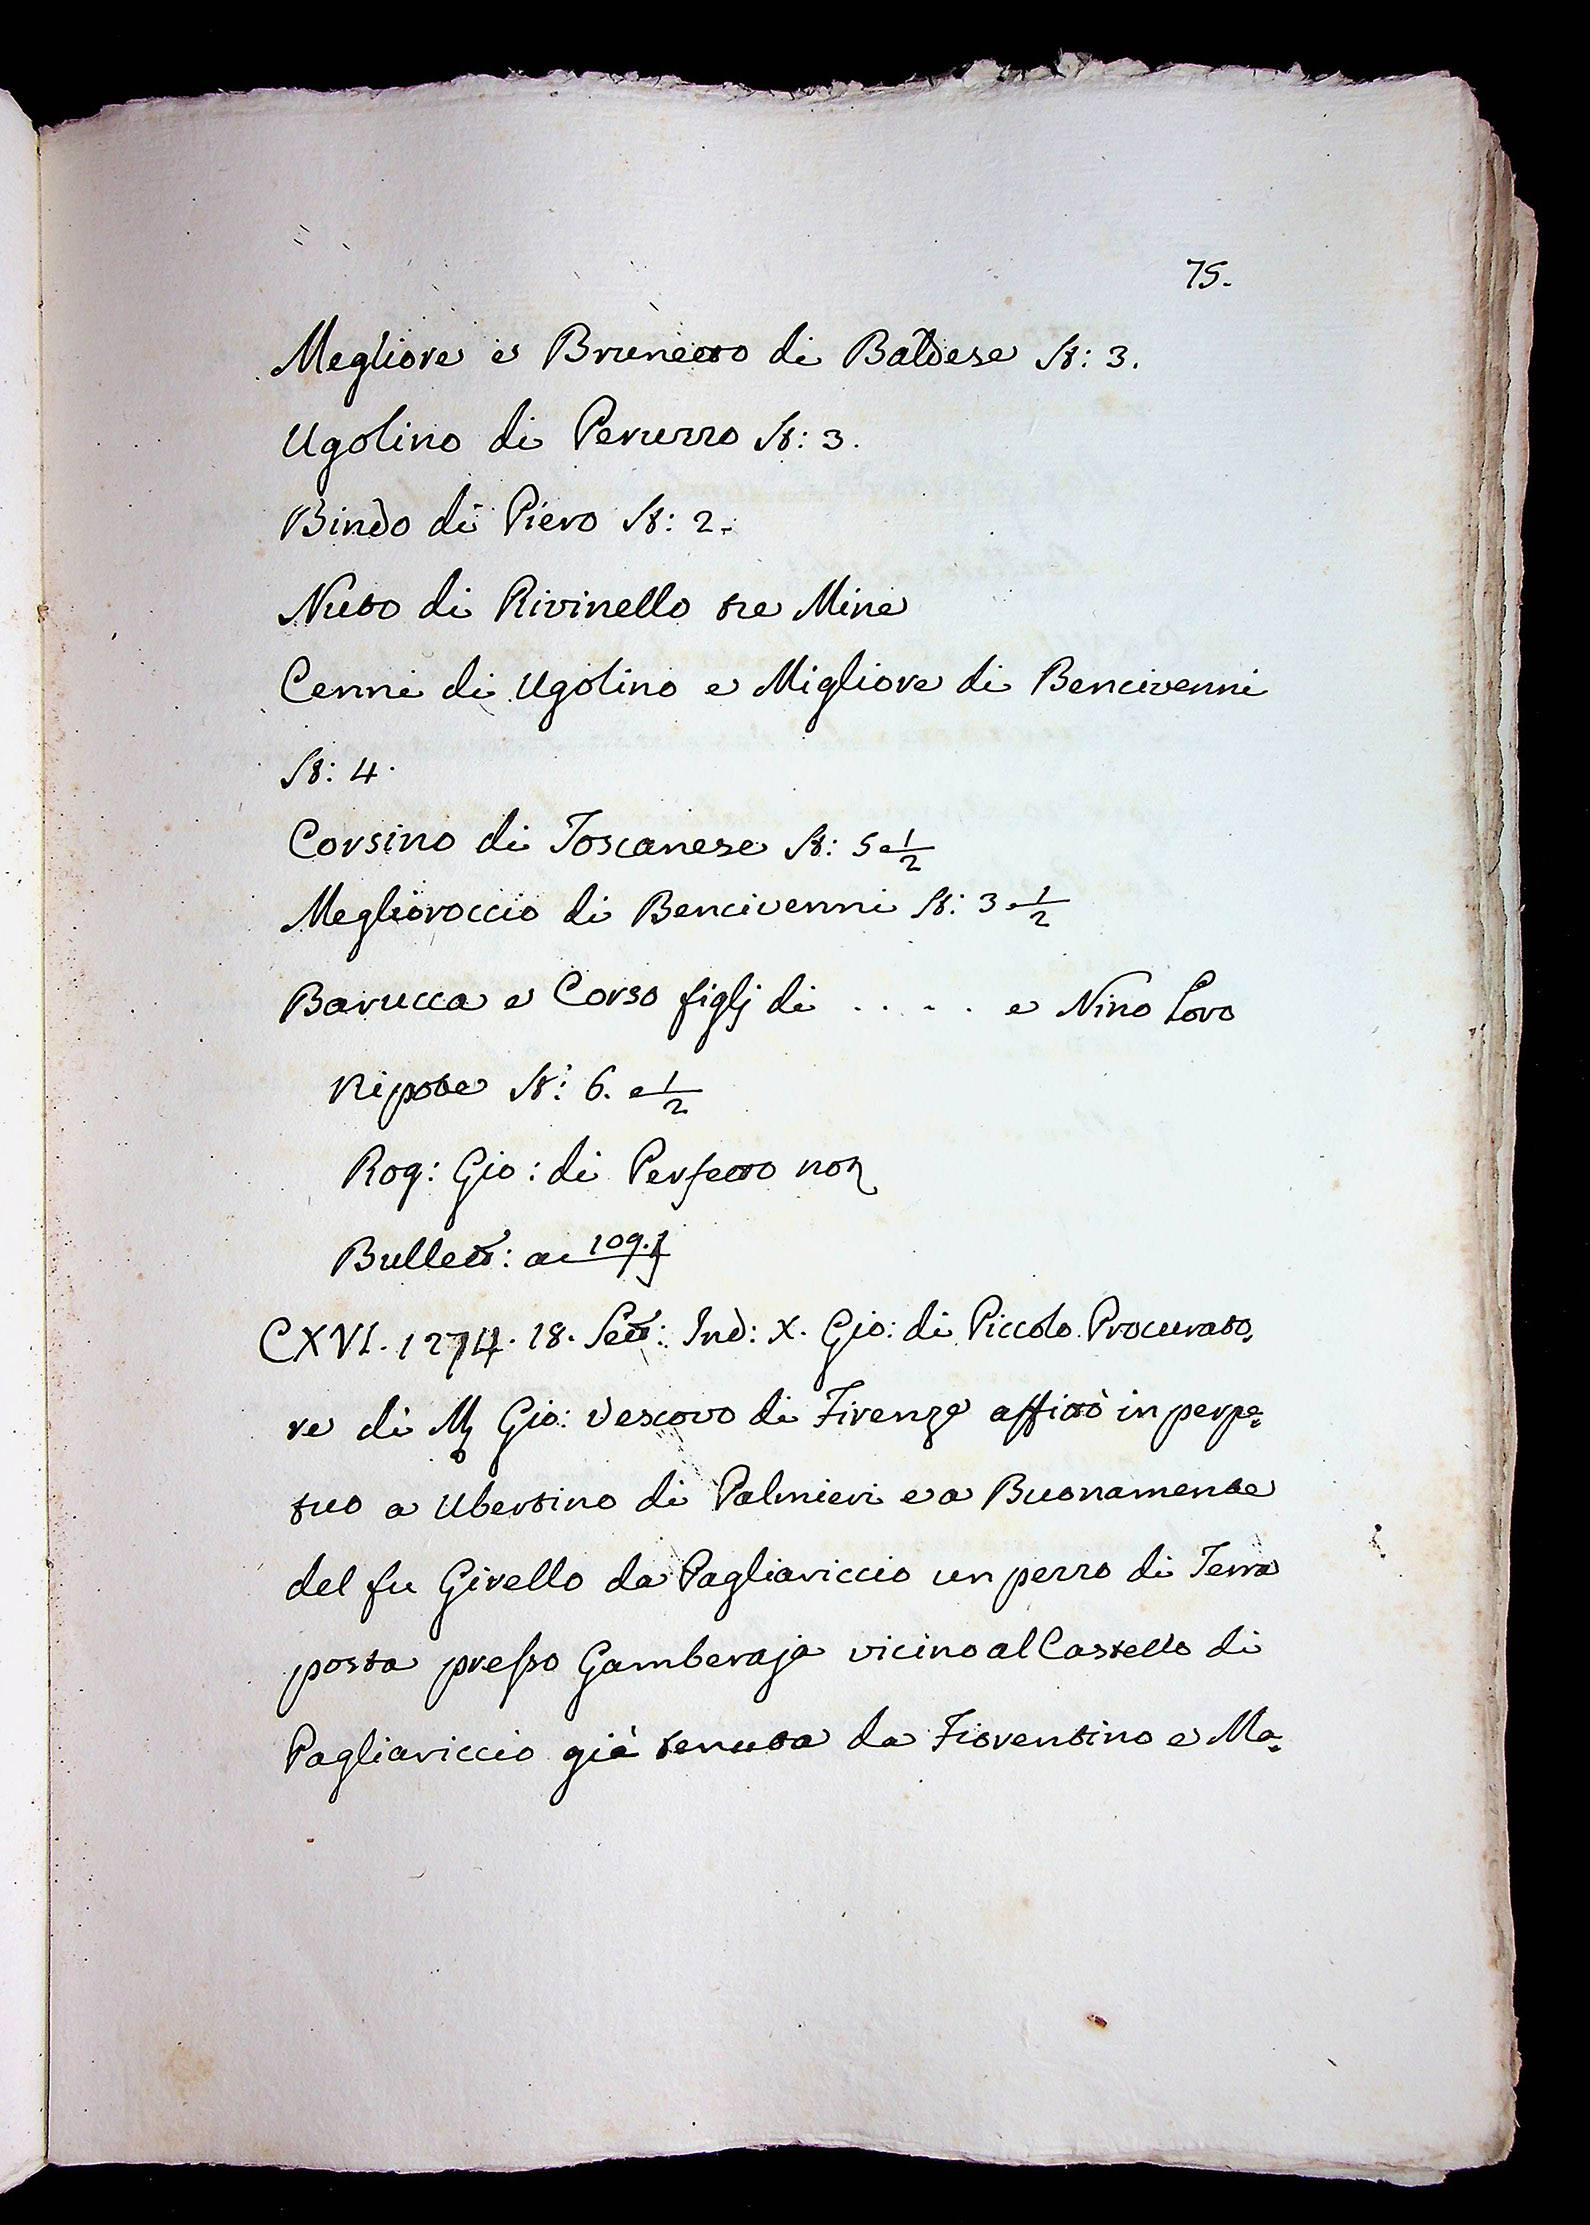 75.
Megliore e Brunetto di Baldese St: 3.
Ugolino di Peruzzo St: 3.
Bindo di Piero St: 2.
Nuto di Rivinello tre Mine
Cenni di Ugolino e Migliore di Bencivenni
St: 4.
Corsino di Toscanese St: 5 e 1/2
Meglioroccio di Bencivenni St: 3 e 1/2
Barucca e Corso figlj di . . . . e Nino Loro
Nipote St: 6. e 1/2
Rog: Gio: di Perfetto not
Bullett: a 109.
CXVI. 1274. 18. Sett: Ind: X. Gio: di Piccolo Procurato,
re di M Gio: Vescovo di Firenze affittò in perpe=
tuo a Ubertino di Palmieri e a Buonamente
del fu Givello da Pagliariccio un pezzo di Terra
posta presso Gamberaja vicino al Castello di
Pagliariccio già tenuta da Fiorentino e Ma=